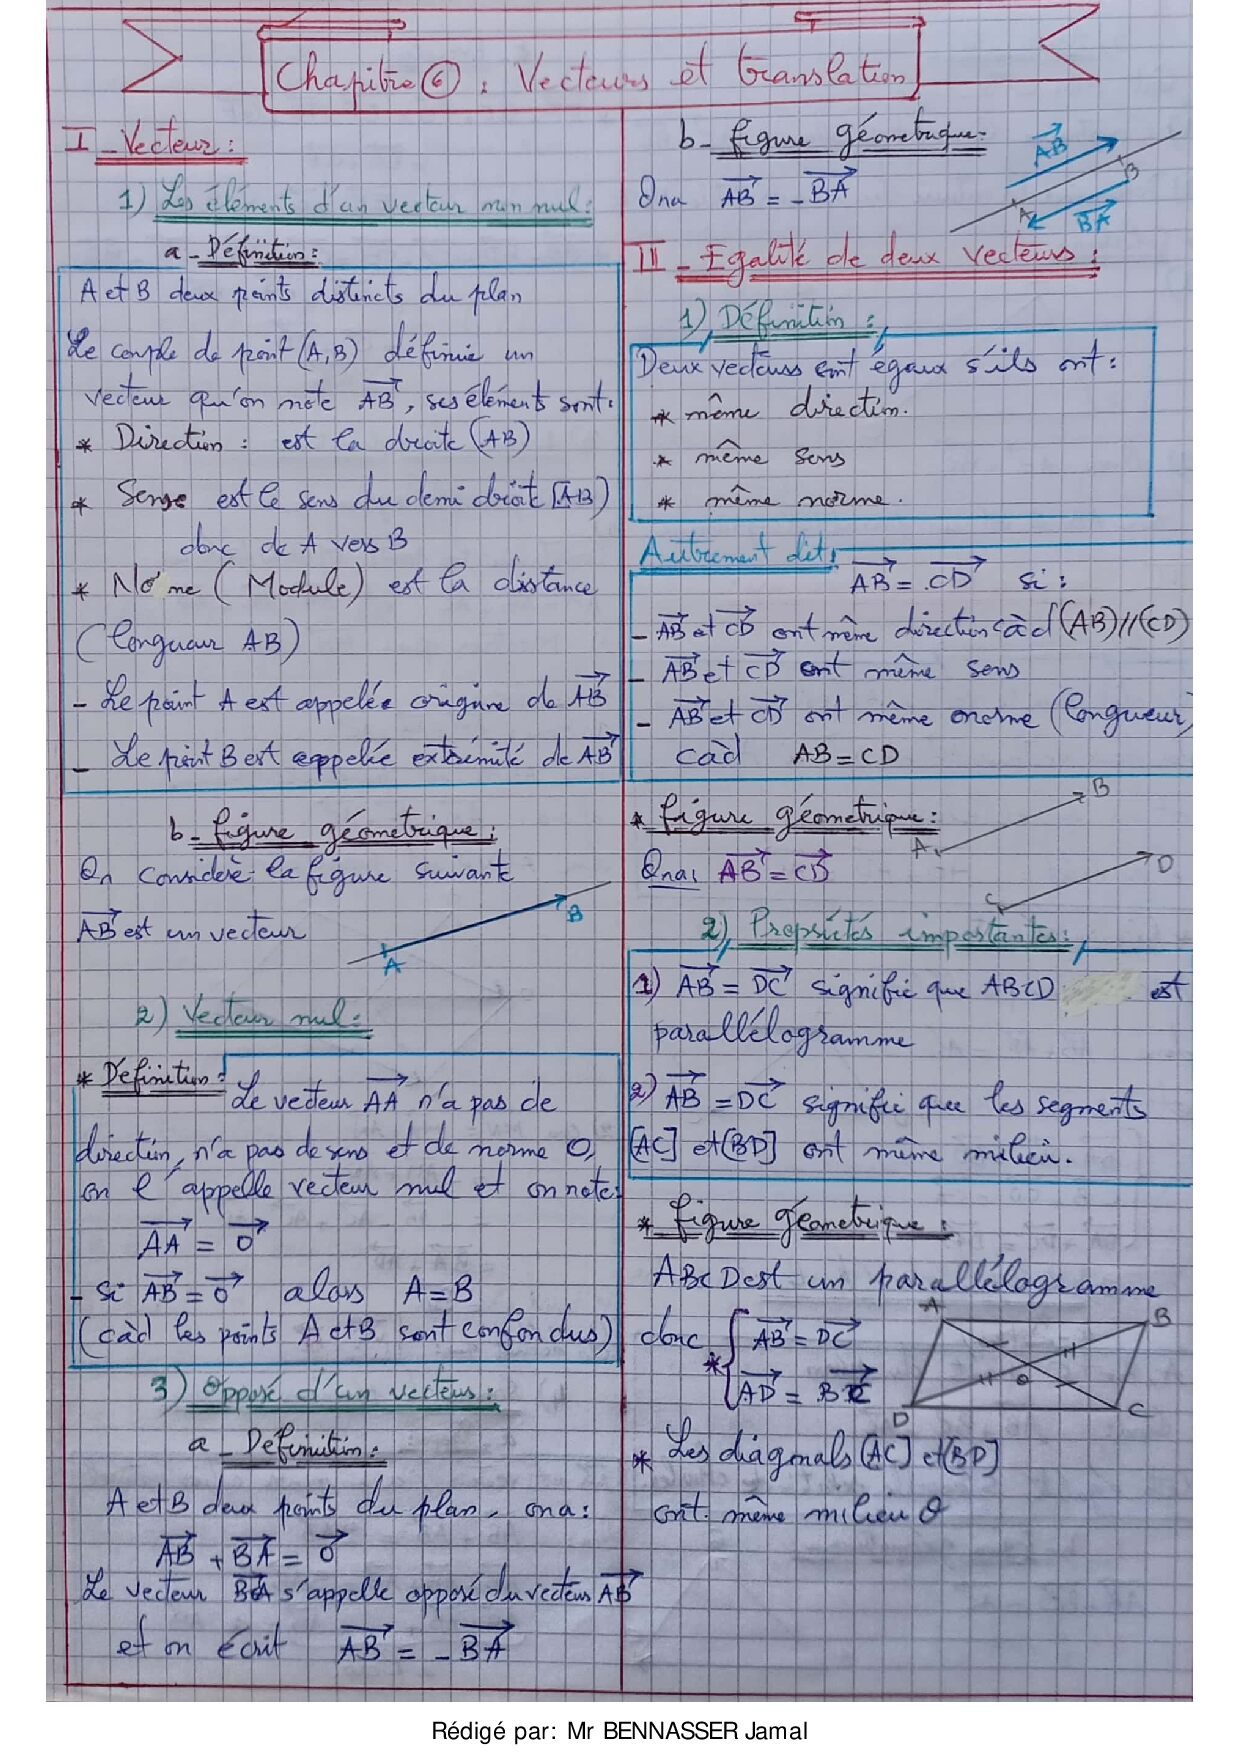 Chapitre 6 : Vecteurs et translation
I - Vecteur :
1) Les éléments d'un vecteur non nul :
a - Définition :
A et B deux points distincts du plan
Le couple de point (A,B) définie un
vecteur qu'on note AB, ses éléments sont :
* Direction : est la droite (AB)
* Sens est le sens du demi droite [AB)
donc de A vers B
* No me (Module) est la distance
(longueur AB)
- Le point A est appelée origine de AB
- Le point B est appelée extrémité de AB
b - figure géometrique :
On considère la figure suivante
AB est un vecteur
A B
2) Vecteur nul :
* Définition : Le vecteur AA n'a pas de
direction, n'a pas de sens et de norme 0,
on l'appelle vecteur nul et on note :
AA = 0
- Si AB = 0 alors A = B
(càd les points A et B sont confondus)
3) Opposé d'un vecteur :
a - Définition :
A et B deux points du plan, on a :
AB + BA = 0
Le vecteur BA s'appelle opposé du vecteur AB
et on écrit AB = - BA
b - figure géometrique :
Ona AB = - BA
AB
B
A
BA
II - Egalité de deux vecteurs :
1) Définition :
Deux vecteurs sont égaux s'ils ont :
* même direction.
* même sens
* même norme.
Autrement dit : AB = CD si :
- AB et CD ont même direction càd (AB)//(CD)
- AB et CD ont même sens
- AB et CD ont même norme (longueur)
càd AB = CD
* figure géometrique :
A B
Ona : AB = CD
C D
2) Propriétés importantes :
1) AB = DC signifie que ABCD est
parallélogramme
2) AB = DC signifie que les segments
[AC] et [BD] ont même milieu.
* figure géometrique :
ABCD est un parallélogramme
donc * { AB = DC
AD = BC
A B
O
D C
* Les diagonals [AC] et [BD]
ont même milieu O
Rédigé par: Mr BENNASSER Jamal